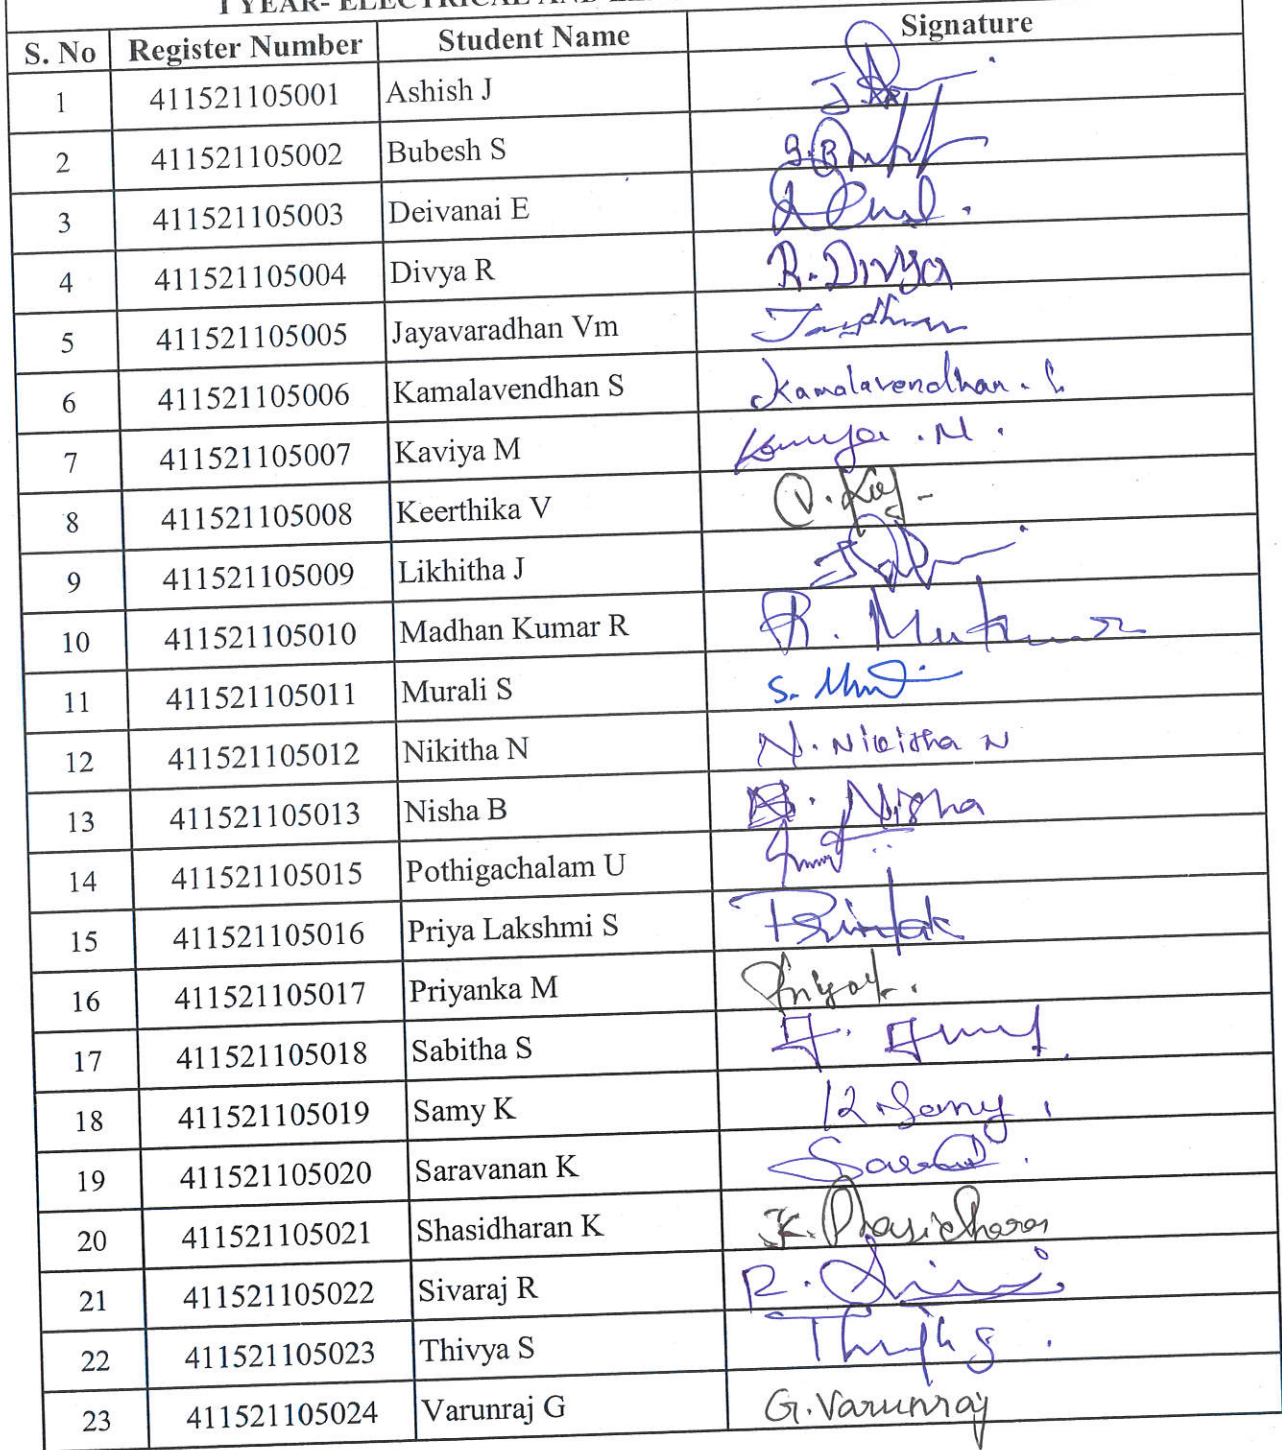 I YEAR- ELECTRICAL AND
S. No Register Number Student Name Signature
1 411521105001 Ashish J
2 411521105002 Bubesh S
3 411521105003 Deivanai E
4 411521105004 Divya R R. Divya
5 411521105005 Jayavaradhan Vm
6 411521105006 Kamalavendhan S Kamalavendhan. S
7 411521105007 Kaviya M
8 411521105008 Keerthika V
9 411521105009 Likhitha J
10 411521105010 Madhan Kumar R
11 411521105011 Murali S
12 411521105012 Nikitha N N. Nikitha N
13 411521105013 Nisha B Nisha
14 411521105015 Pothigachalam U
15 411521105016 Priya Lakshmi S
16 411521105017 Priyanka M
17 411521105018 Sabitha S
18 411521105019 Samy K K. Samy
19 411521105020 Saravanan K
20 411521105021 Shasidharan K
21 411521105022 Sivaraj R
22 411521105023 Thivya S
23 411521105024 Varunraj G G. Varunraj